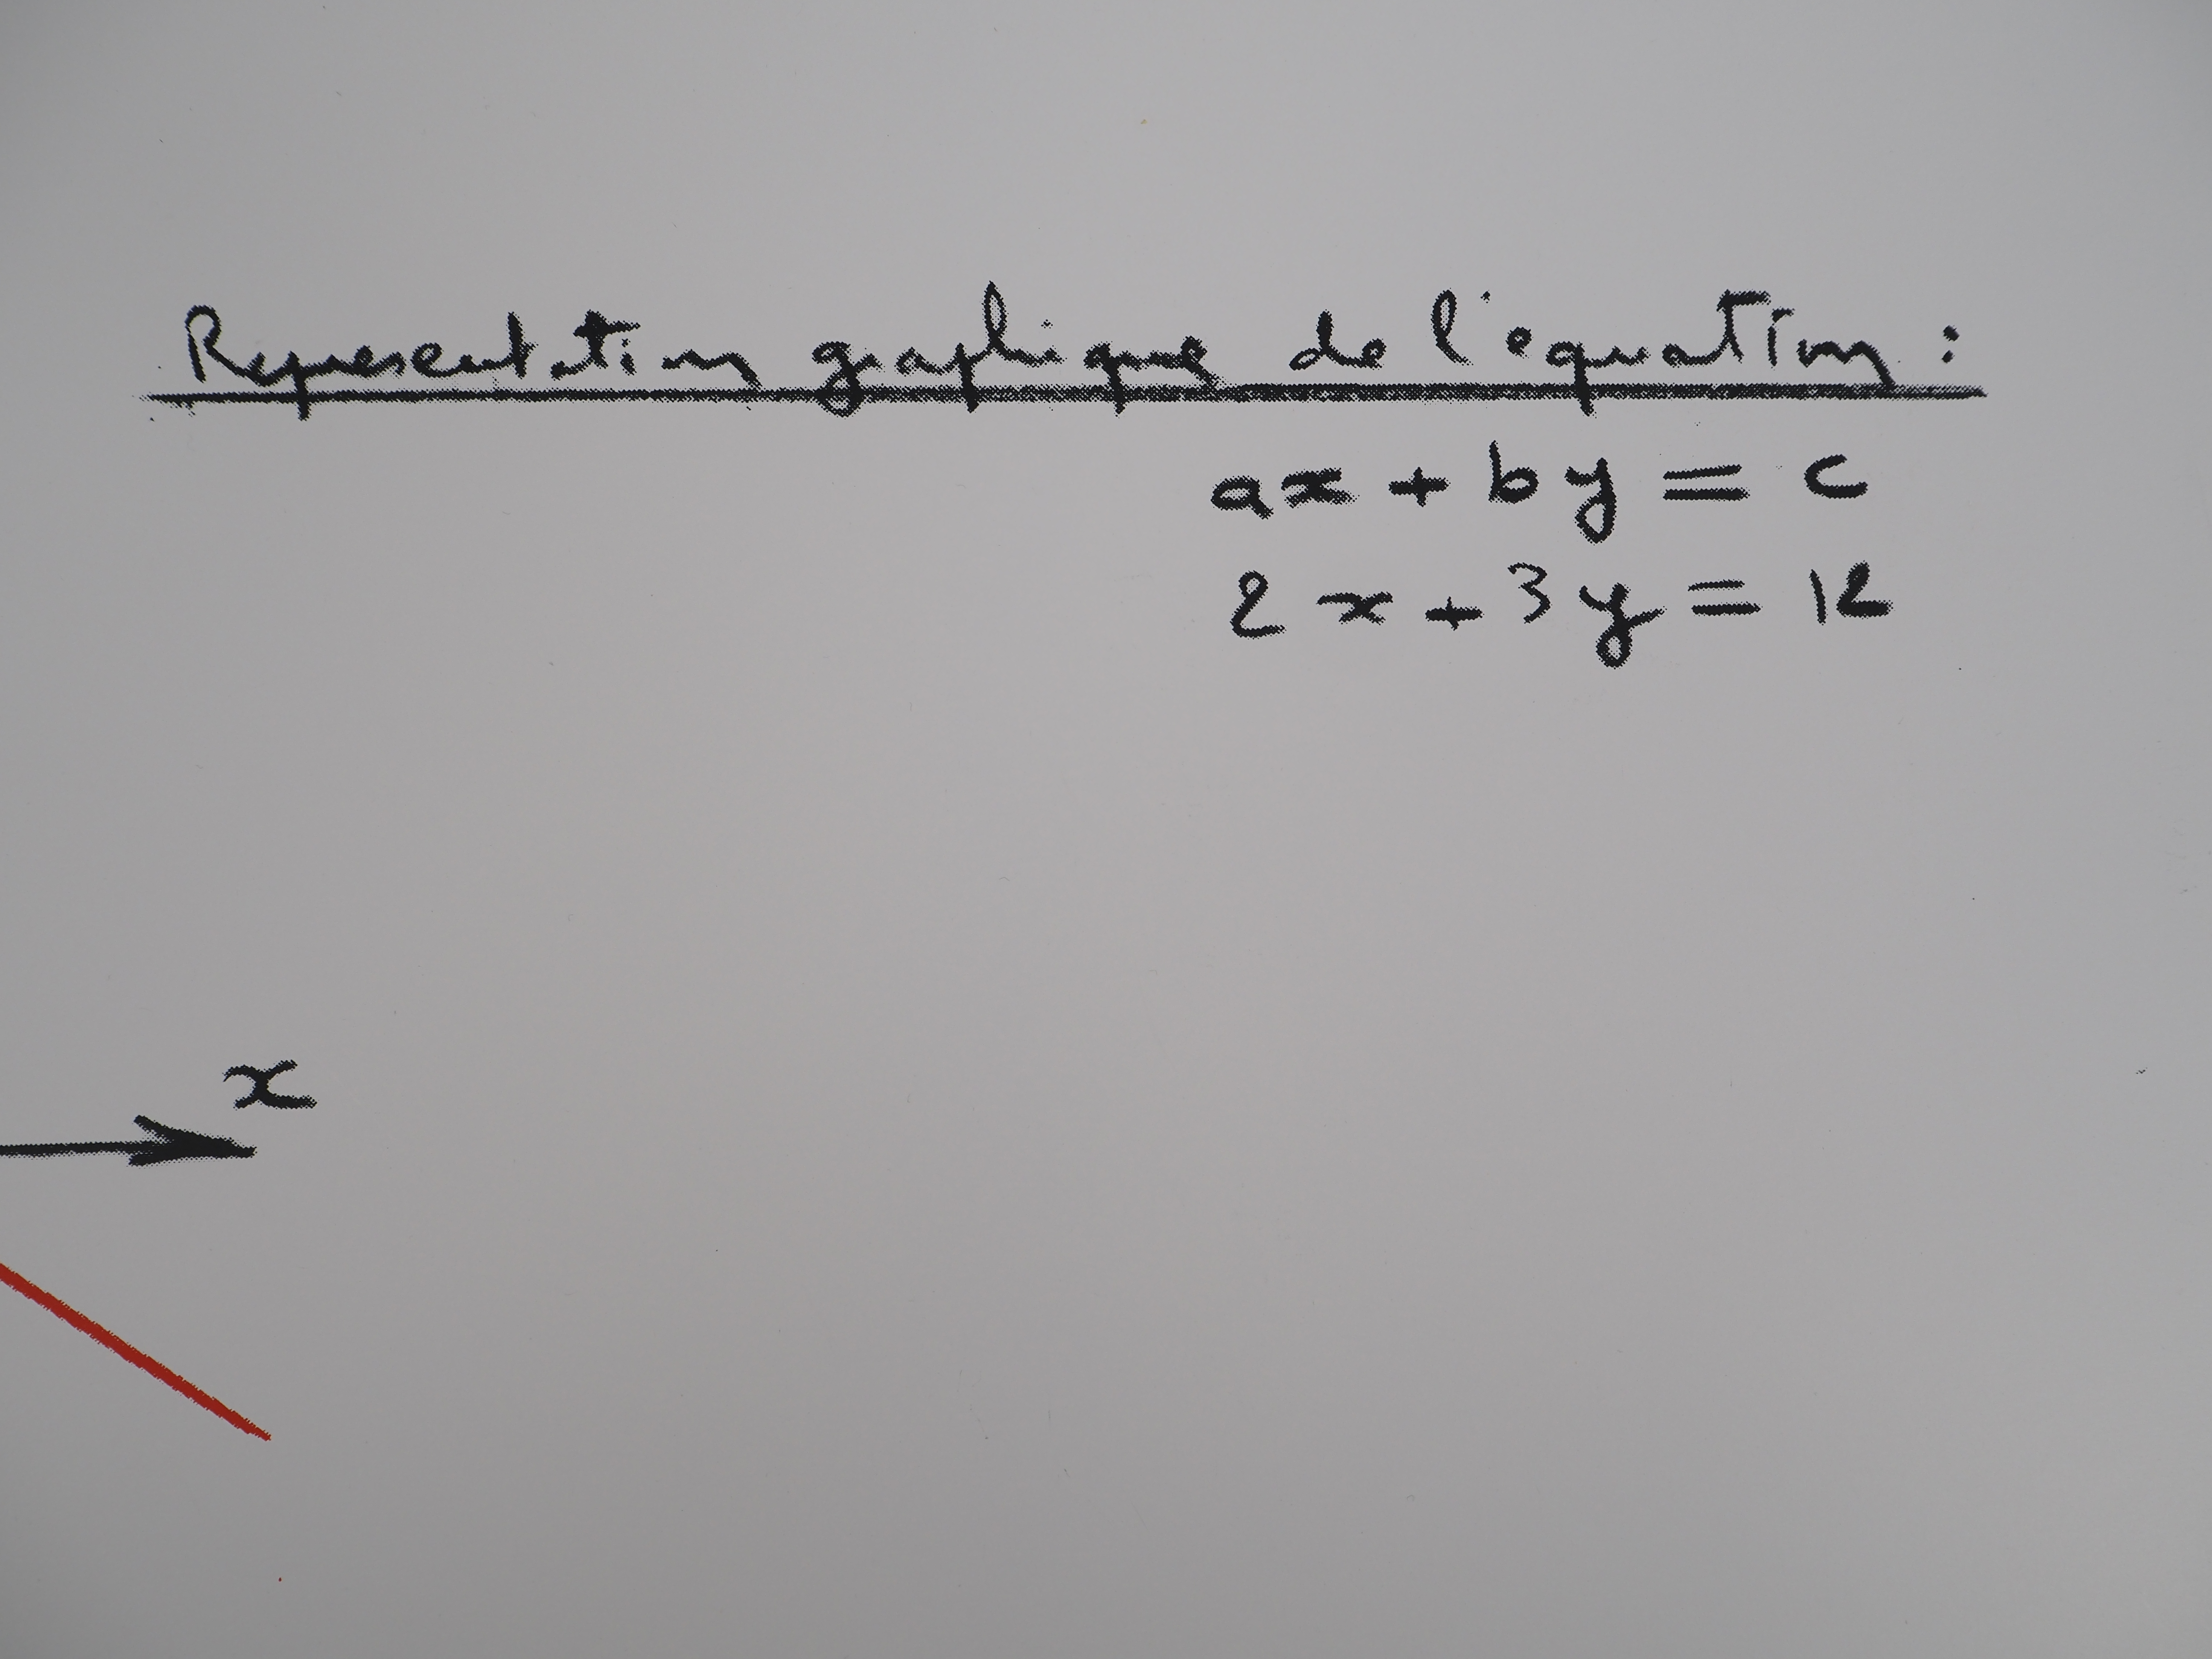 Representation graphique de l'equation :
ax + by = c
2x + 3y = 12
x